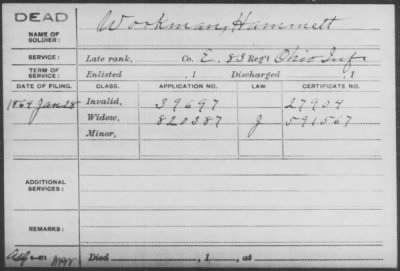 DEAD
NAME OF SOLDIER: Workman, Hammett
SERVICE: Late rank, Co. E. 83 Reg't Ohio Inf.
TERM OF SERVICE: Enlisted , 1 Discharged , 1
DATE OF FILING. CLASS. APPLICATION NO. LAW. CERTIFICATE NO.
1864 Jan 28 Invalid, 39697 27904
Widow, 820387 J 591567
Minor,
ADDITIONAL SERVICES:
REMARKS:
Died , 1 , at